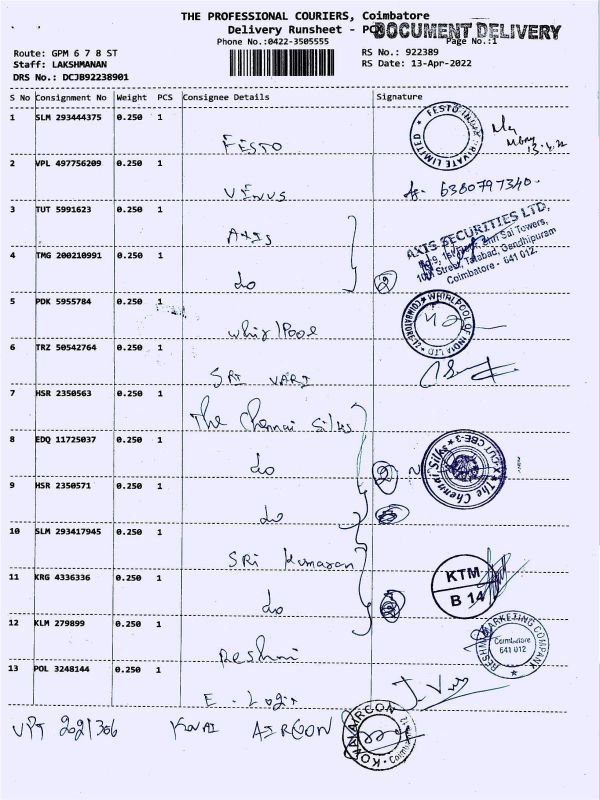 THE PROFESSIONAL COURIERS, Coimbatore
Delivery Runsheet - POD
DOCUMENT DELIVERY
Phone No.:0422-3505555
Page No.:1
Route: GPM 6 7 8 ST
RS No.: 922389
Staff: LAKSHMANAN
RS Date: 13-Apr-2022
DRS No.: DCJB92238901
S No Consignment No Weight PCS Consignee Details Signature
1 SLM 293444375 0.250 1
FESTO
FESTO INDIA PRIVATE LIMITED
13.4.22
2 VPL 497756209 0.250 1
VENUS
6380797340
3 TUT 5991623 0.250 1
AXIS
AXIS SECURITIES LTD,
Sri Sai Towers,
10th Street, Tatabad, Gandhipuram
Coimbatore - 641 012.
4 TMG 200210991 0.250 1
do 2
5 PDK 5955784 0.250 1
Whirlpool
WHIRLPOOL OF INDIA LTD (COIMBATORE-12)
6 TRZ 50542764 0.250 1
SRI VARI
7 HSR 2350563 0.250 1
The Chennai Silks
8 EDQ 11725037 0.250 1
do 2
The Chennai Silks CBE-3
9 HSR 2350571 0.250 1
do
10 SLM 293417945 0.250 1
SRI Kumaran
KTM
B 14
11 KRG 4336336 0.250 1
do
12 KLM 279899 0.250 1
Reshmi
RESHMI MARKETING COMPANY
Coimbatore
641 012
13 POL 3248144 0.250 1
E. Logix
VPT 2021306 KOVAI AIRCON
KOVAI AIRCON Coimbatore